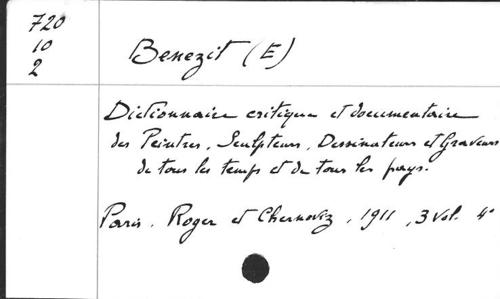 720
10
2
Benezit (E)
Dictionnaire critique et documentaire
des Peintres, Sculpteurs, Dessinateurs et Graveurs
de tous les temps et de tous les pays.
Paris. Roger et Chernoviz, 1911, 3 vol. 4°